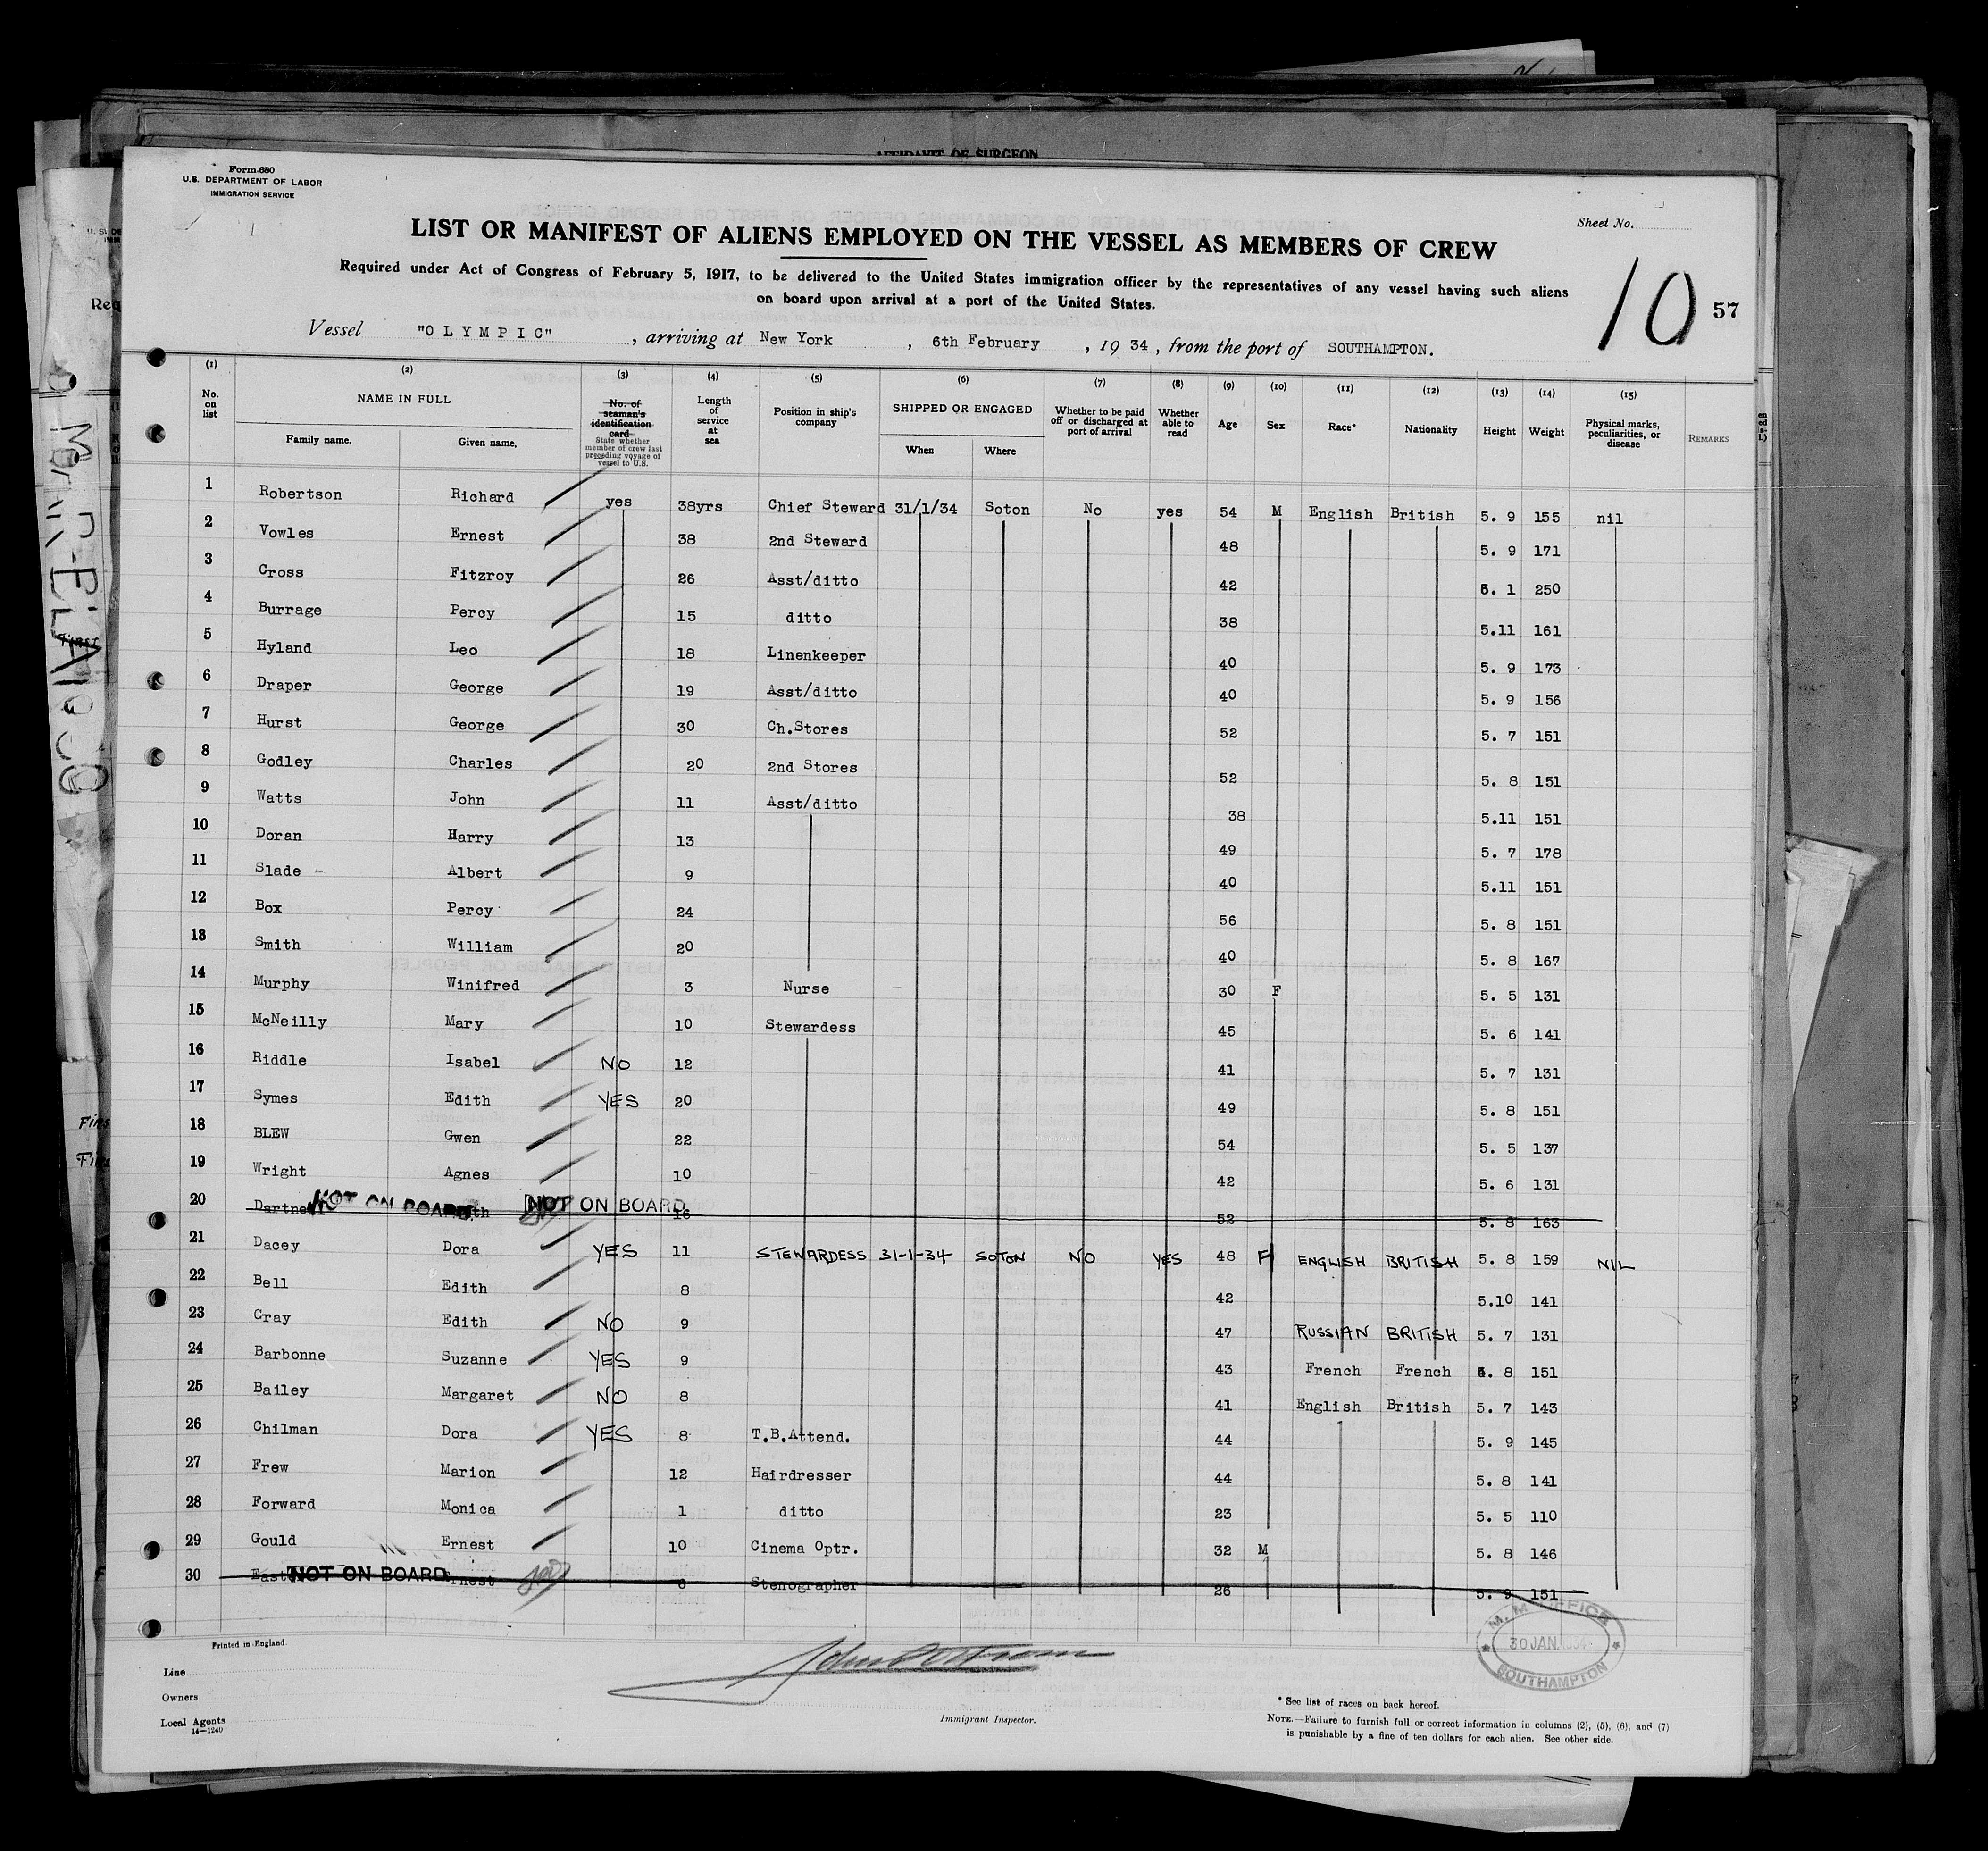 AFFIDAVIT OF SURGEON
Form 680
U.S. DEPARTMENT OF LABOR
IMMIGRATION SERVICE
Sheet No.
LIST OR MANIFEST OF ALIENS EMPLOYED ON THE VESSEL AS MEMBERS OF CREW
Required under Act of Congress of February 5, 1917, to be delivered to the United States immigration officer by the representatives of any vessel having such aliens
on board upon arrival at a port of the United States.
10 57
Vessel "OLYMPIC", arriving at New York, 6th February, 1934, from the port of SOUTHAMPTON.
(1) (2) (3) (4) (5) (6) (7) (8) (9) (10) (11) (12) (13) (14) (15)
No. on list
NAME IN FULL
Family name. Given name.
No. of seaman's identification card
State whether member of crew last preceding voyage of vessel to U.S.
Length of service at sea
Position in ship's company
SHIPPED OR ENGAGED
When Where
Whether to be paid off or discharged at port of arrival
Whether able to read
Age
Sex
Race*
Nationality
Height
Weight
Physical marks, peculiarities, or disease
REMARKS
1 Robertson Richard yes 38yrs Chief Steward 31/1/34 Soton No yes 54 M English British 5. 9 155 nil
2 Vowles Ernest 38 2nd Steward 48 5. 9 171
3 Cross Fitzroy 26 Asst/ditto 42 6. 1 250
4 Burrage Percy 15 ditto 38 5.11 161
5 Hyland Leo 18 Linenkeeper 40 5. 9 173
6 Draper George 19 Asst/ditto 40 5. 9 156
7 Hurst George 30 Ch.Stores 52 5. 7 151
8 Godley Charles 20 2nd Stores 52 5. 8 151
9 Watts John 11 Asst/ditto 38 5.11 151
10 Doran Harry 13 49 5. 7 178
11 Slade Albert 9 40 5.11 151
12 Box Percy 24 56 5. 8 151
13 Smith William 20 40 5. 8 167
14 Murphy Winifred 3 Nurse 30 F 5. 5 131
15 McNeilly Mary 10 Stewardess 45 5. 6 141
16 Riddle Isabel NO 12 41 5. 7 131
17 Symes Edith YES 20 49 5. 8 151
18 BLEW Gwen 22 54 5. 5 137
19 Wright Agnes 10 42 5. 6 131
20 NOT ON BOARD NOT ON BOARD 16 52 5. 8 163
21 Dacey Dora YES 11 STEWARDESS 31-1-34 SOTON NO YES 48 F ENGLISH BRITISH 5. 8 159 NIL
22 Bell Edith 8 42 5.10 141
23 Gray Edith NO 9 47 RUSSIAN BRITISH 5. 7 131
24 Barbonne Suzanne YES 9 43 French French 5. 8 151
25 Bailey Margaret NO 8 41 English British 5. 7 143
26 Chilman Dora YES 8 T.B.Attend. 44 5. 9 145
27 Frew Marion 12 Hairdresser 44 5. 8 141
28 Forward Monica 1 ditto 23 5. 5 110
29 Gould Ernest 10 Cinema Optr. 32 M 5. 8 146
30 NOT ON BOARD Ernest 6 Stenographer 26 5. 9 151
Printed in England.
Line
Owners
Local Agents
14—1240
Immigrant Inspector.
M. M. OFFICE
30 JAN. 1934
SOUTHAMPTON
* See list of races on back hereof.
NOTE.—Failure to furnish full or correct information in columns (2), (5), (6), and (7)
is punishable by a fine of ten dollars for each alien. See other side.